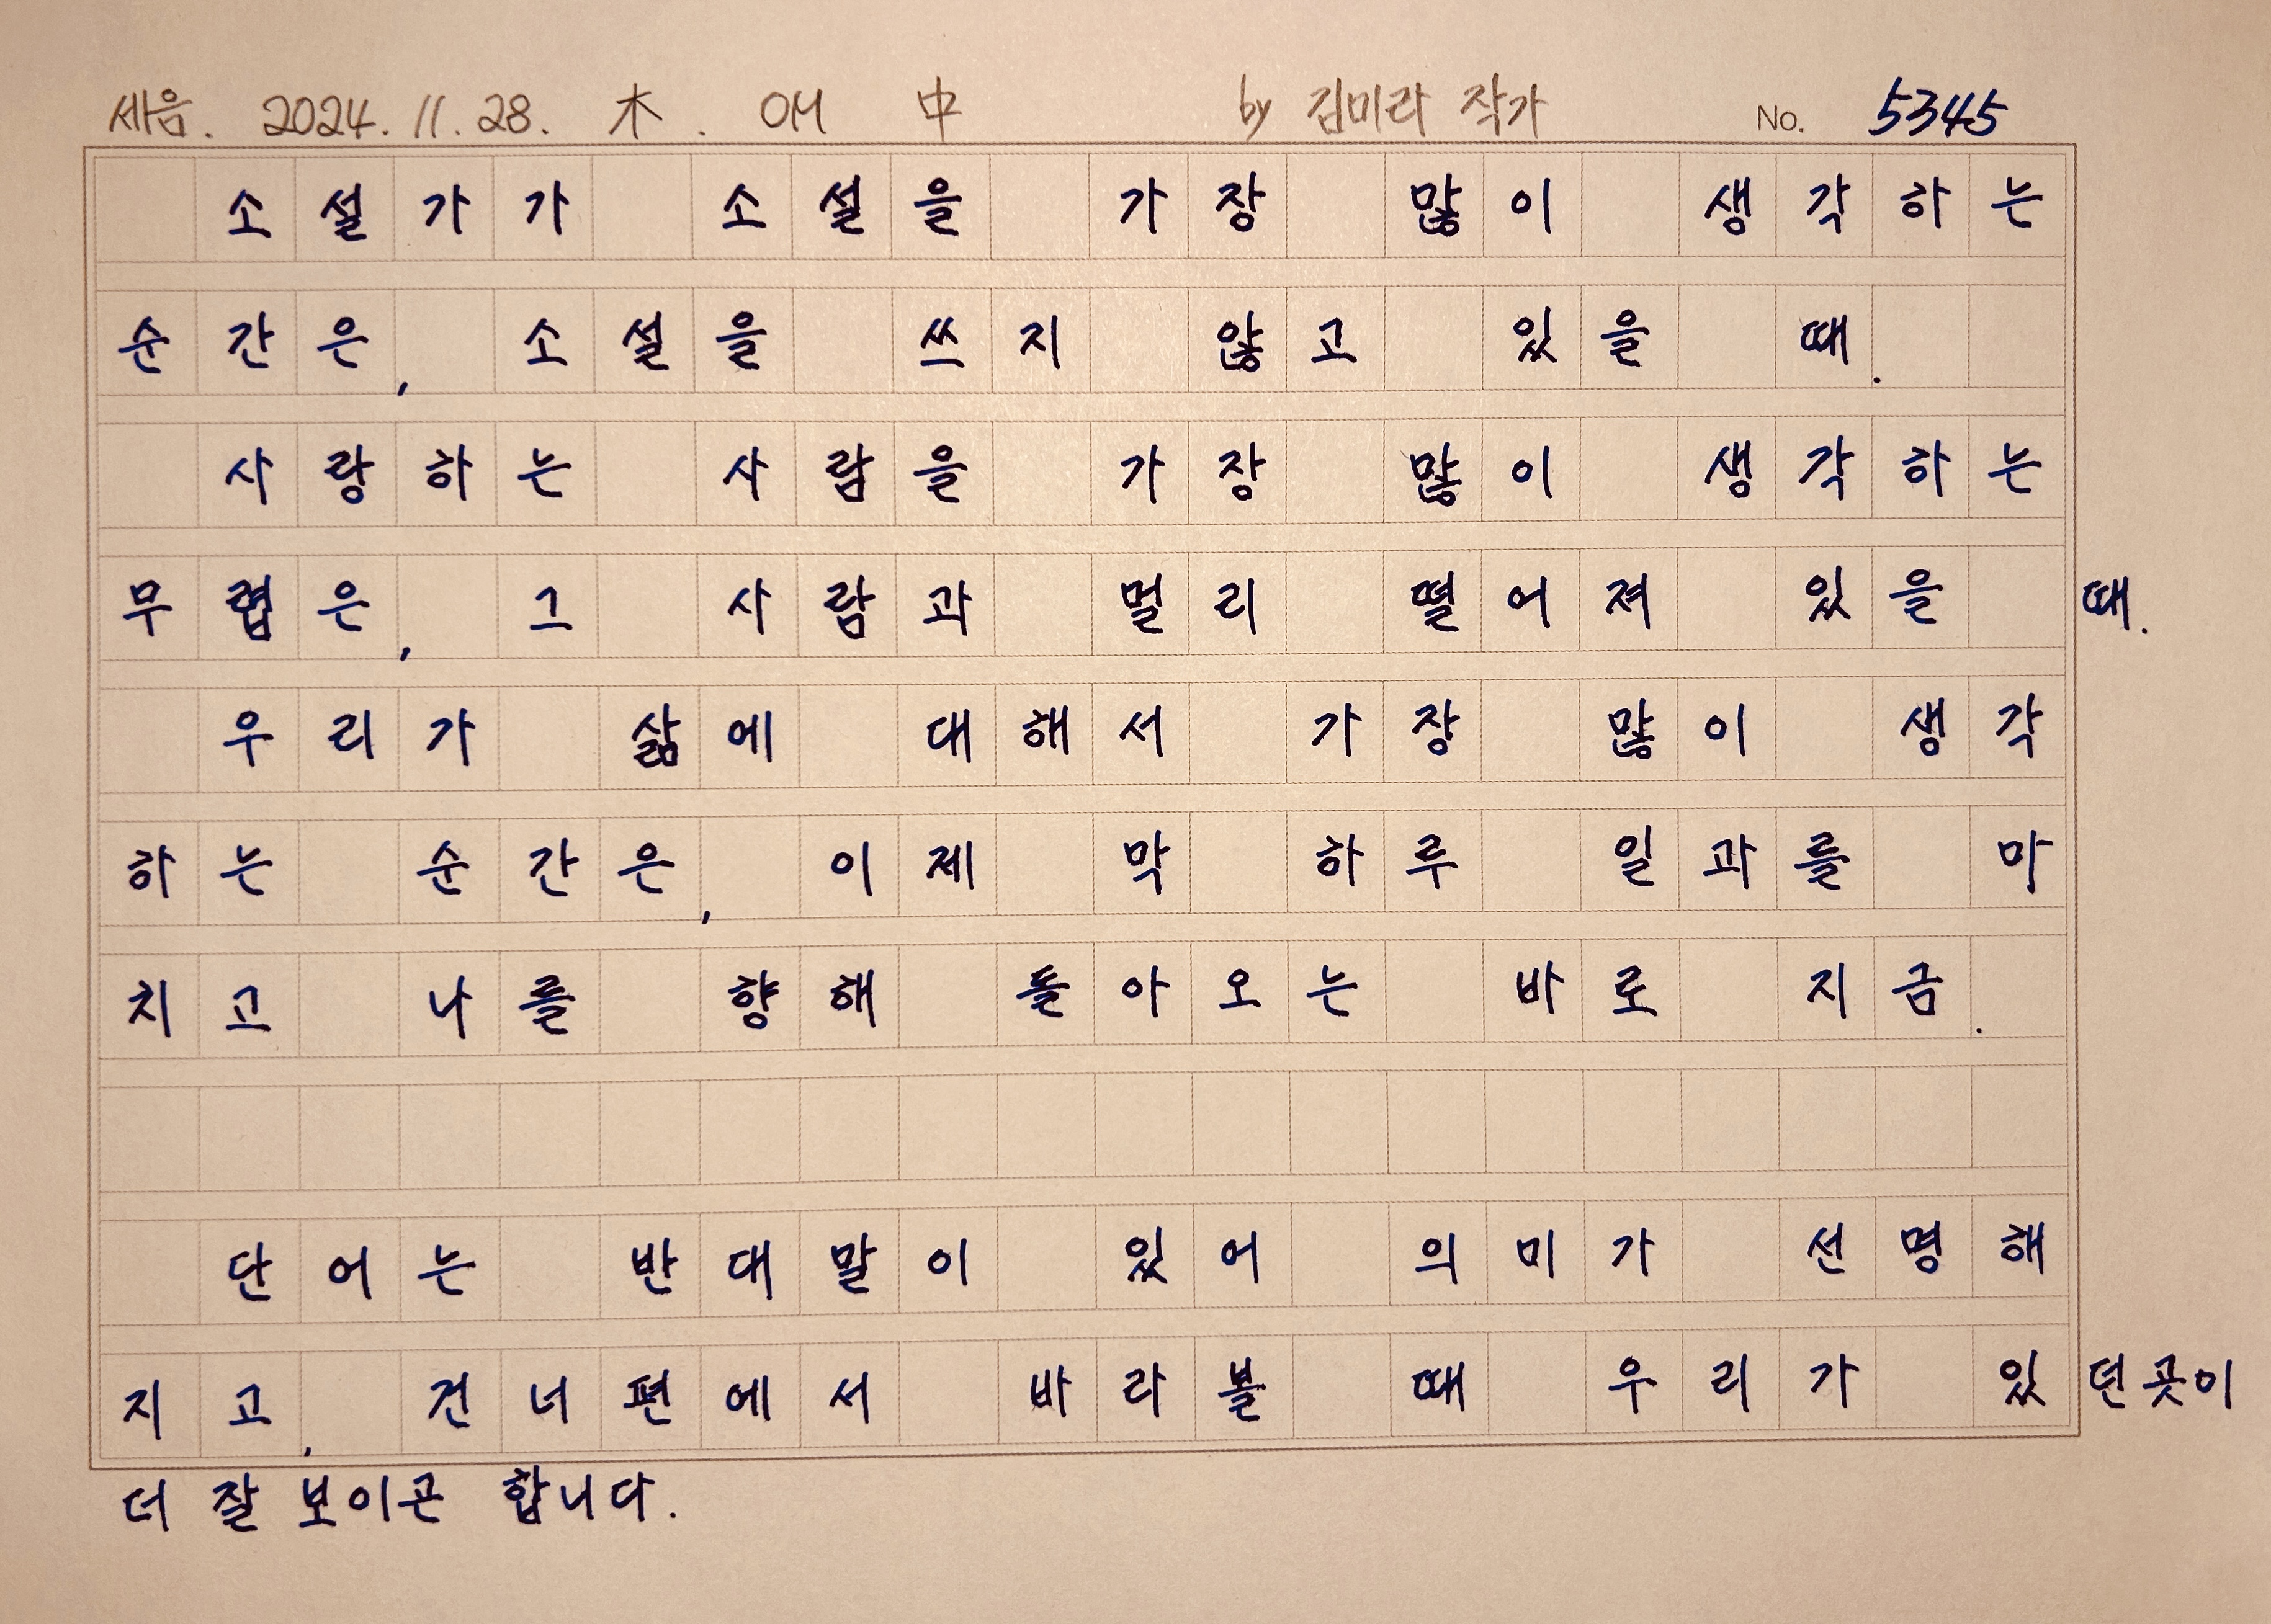 세음. 2024. 11. 28. 木. 애 中 by 김미라 작가 No. 5345
소설가가 소설을 가장 많이 생각하는
순간은, 소설을 쓰지 않고 있을 때.
사랑하는 사람을 가장 많이 생각하는
무렵은, 그 사람과 멀리 떨어져 있을 때.
우리가 삶에 대해서 가장 많이 생각
하는 순간은, 이제 막 하루 일과를 마
치고 나를 향해 돌아오는 바로 지금.
단어는 반대말이 있어 의미가 선명해
지고, 건너편에서 바라볼 때 우리가 있던 곳이
더 잘 보이곤 합니다.